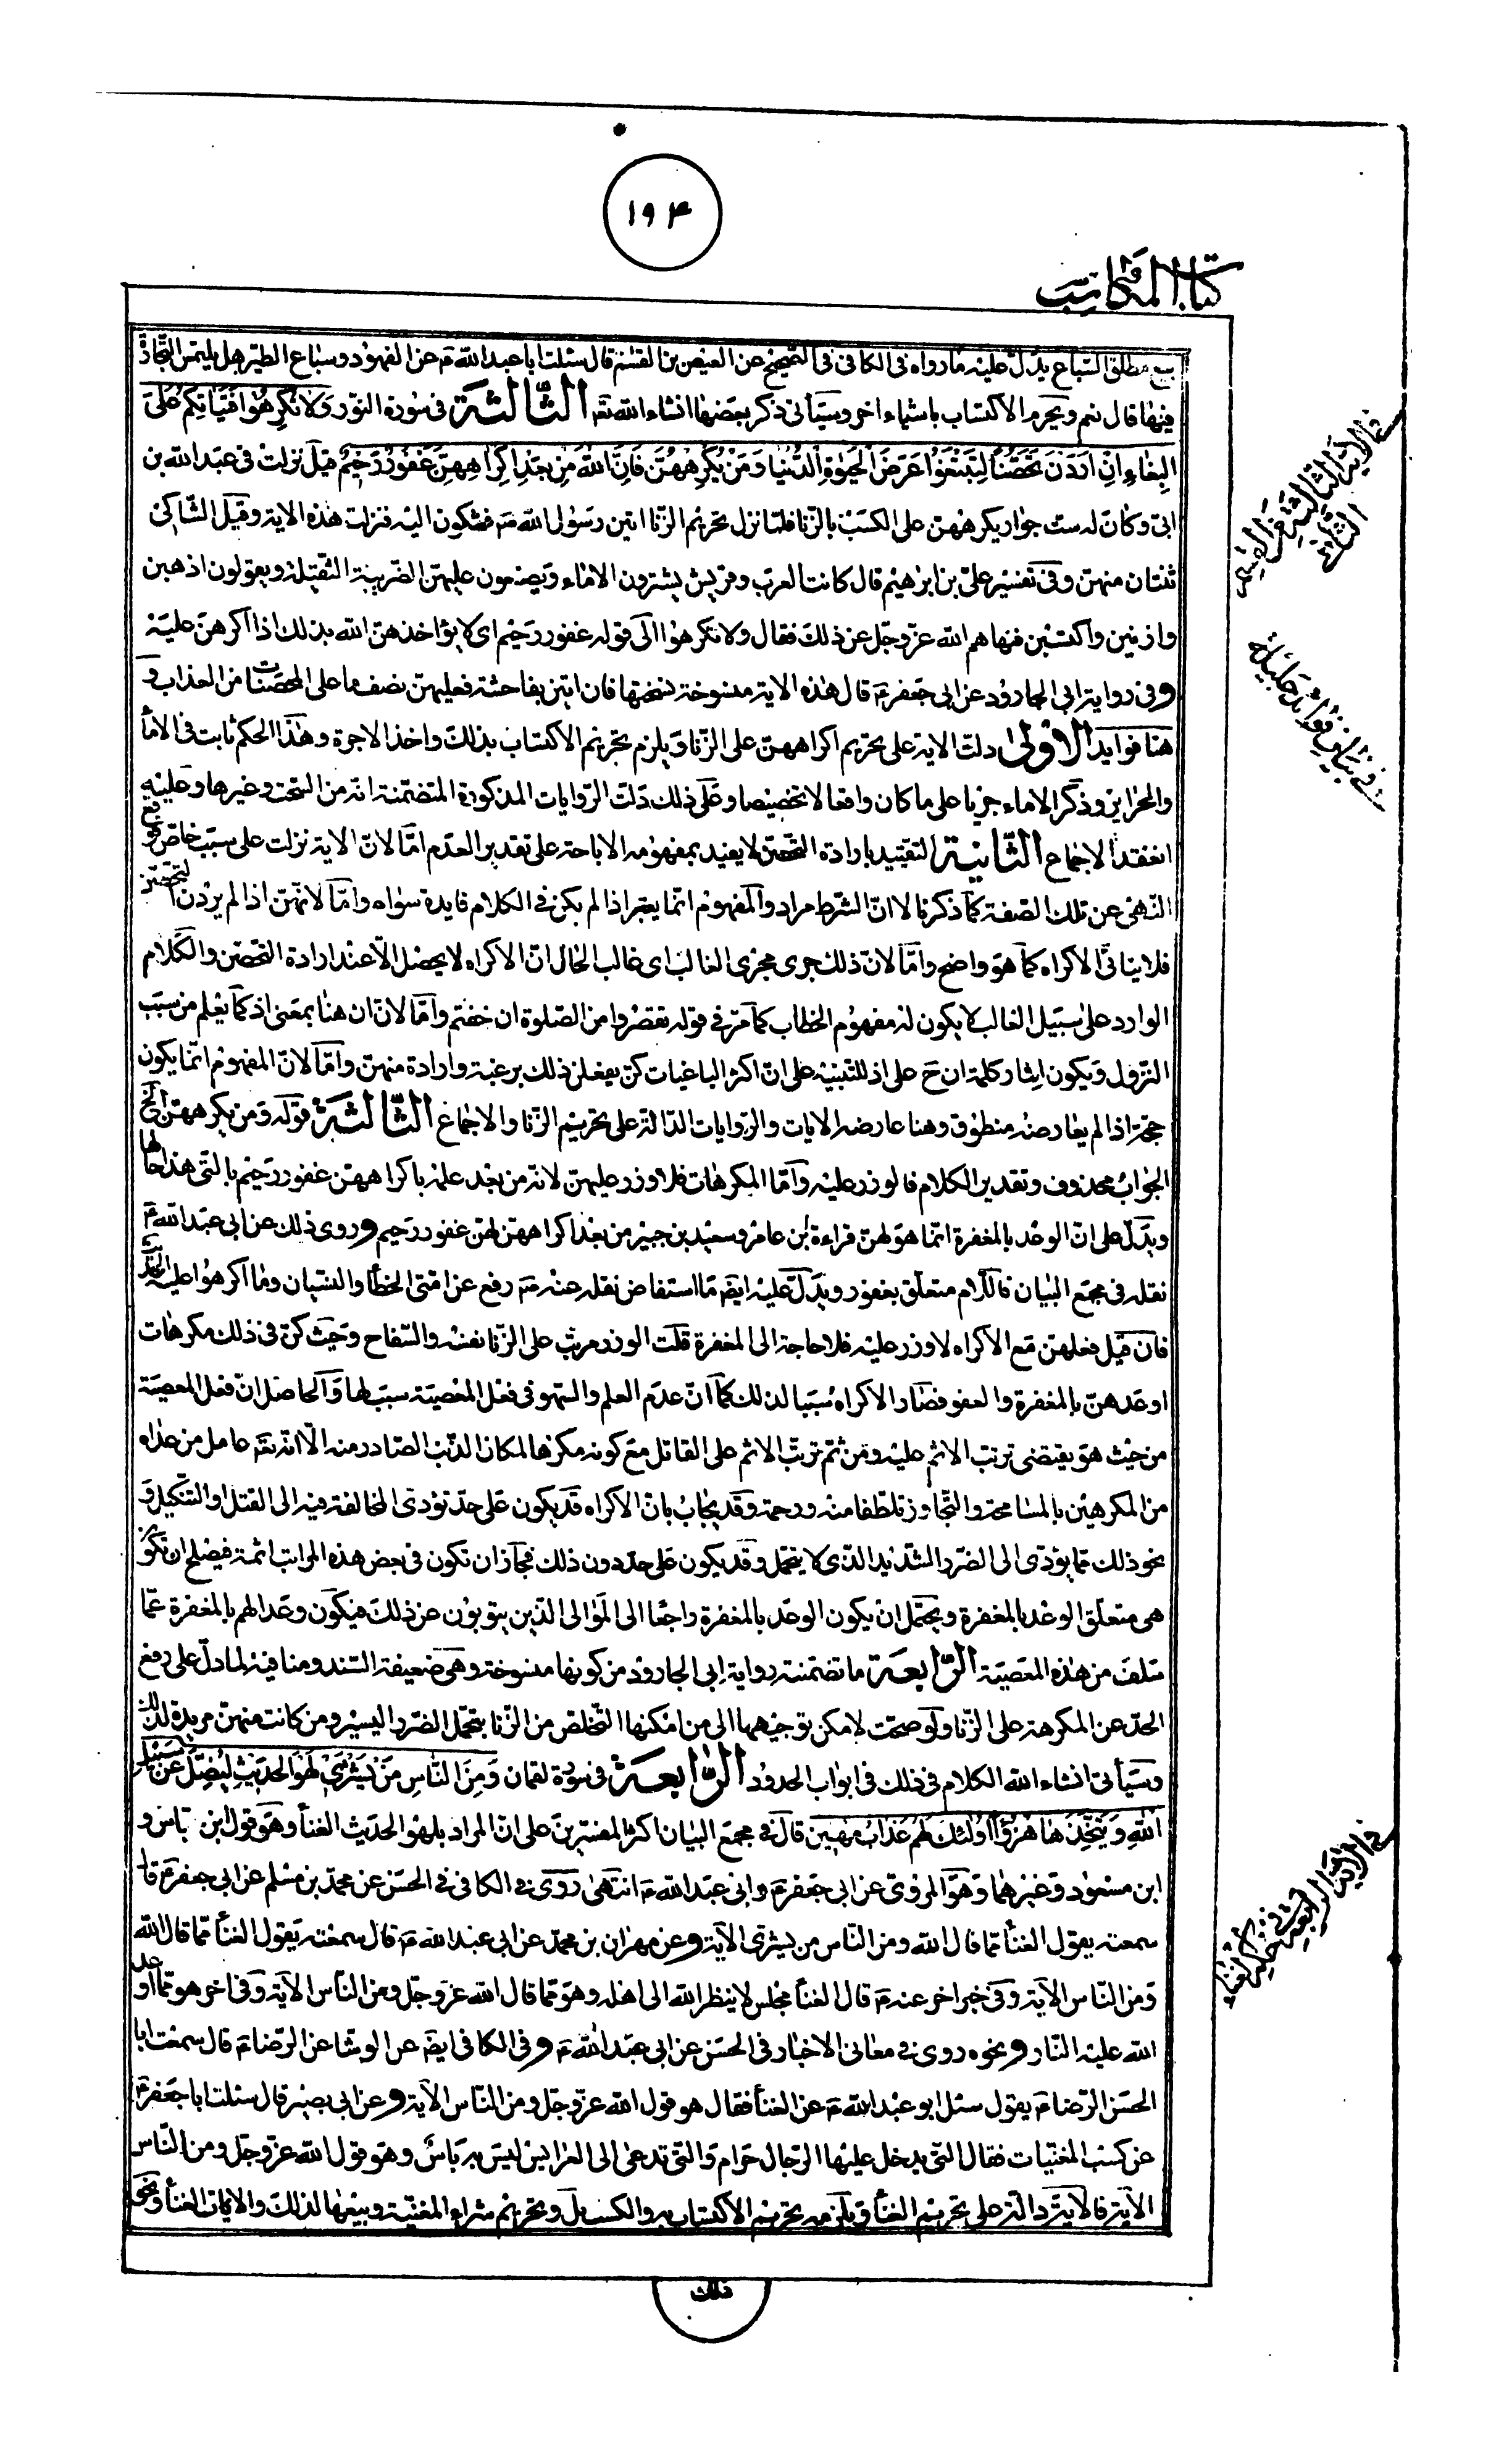 ١٩۴
كتاب المكاتب
بيع مطلق السباع يدلّ عليه ما رواه فى الكافى فى الصحيح عن العيص بن القسم قال سئلت ابا عبد الله ع عن الفهود وسباع الطير هل يلتمس التجارة
فيها قال نعم ويحرم الاكتساب باشياء اخر وسيأتى ذكر بعضها انشاء الله تع الثّالثة فى سورة النّور وَلا تُكْرِهُوا فَتَيٰاتِكُمْ عَلَى
الْبِغٰاءِ اِنْ اَرَدْنَ تَحَصُّنًا لِتَبْتَغُوا عَرَضَ الْحَيٰوةِ الدُّنْيٰا وَمَنْ يُكْرِهْهُنَّ فَاِنَّ اللهَ مِنْ بَعْدِ اِكْرٰاهِهِنَّ غَفُورٌ رَحِيمٌ قيل نزلت فى عبد الله بن
ابى وكان له ست جوار يكرههن على الكسب بالزّنا فلمّا نزل تحريم الزّنا اتين رسول الله ص فشكون اليه فنزلت هذه الاية وقيل الشّاكى
ثنتان منهنّ وفى تفسير علىّ بن ابرٰهيم قال كانت العرب وقريش يشترون الاماء ويضعون عليهنّ الضّريبة الثّقيلة ويقولون اذهبن
وازنين واكتسبن فنهاهم الله عزّ وجلّ عن ذلك فقال ولا تكرهوا الى قوله غفور رحيم اى لا يؤاخذهنّ الله بذلك اذا اكرهن عليه
وفى رواية ابى الجارود عن ابى جعفر ع قال هذه الاية منسوخة نسختها فان اتين بفاحشة فعليهنّ نصف ما على المحصنات من العذاب و
هنا فوايد الاولىٰ دلت الاية على تحريم اكراههنّ على الزّنا ويلزم تحريم الاكتساب بذلك واخذ الاجرة وهذا الحكم ثابت فى الاماء
والحراير وذكر الاماء جريا على ما كان واقعا لا تخصيصا وعلى ذلك دلّت الرّوايات المذكورة المتضمنة انه من السّحت وغيرها وعليه
انعقد الاجماع الثّانية التقييد بارادة التّحصّن لا يفيد بمفهومه الاباحة على تقدير العدم امّا لانّ الاية نزلت على سبب خاصّ فوقع
النّهى عن تلك الصّفة كما ذكرنا لا انّ الشّرط مراد والمفهوم انّما يعتبر اذا لم يكن فى الكلام فايدة سواه وامّا لانّهنّ اذا لم يردن التحصّن
فلا ينافى الاكراه كما هو واضح وامّا لانّ ذلك جرى مجرى الغالب اى غالب الحال انّ الاكراه لا يحصل الّا عند ارادة التّحصّن والكلام
الوارد على سبيل الغالب لا يكون له مفهوم الخطاب كما مرّ فى قوله تقصروا من الصّلوة ان خفتم وامّا لانّ ان هنا بمعنى اذ كما يعلم من سبب
النّزول ويكون ايثار كلمة ان ح على اذ للتّنبيه على انّ اكثر الباغيات كنّ يفعلن ذلك برغبة وارادة منهنّ وامّا لانّ المفهوم انّما يكون
حجّة اذا لم يعارضه منطوق وهنا عارضه الايات والرّوايات الدّالّة على تحريم الزّنا والاجماع الثّالثة قوله ومن يكرههنّ الخ
الجواب محذوف وتقدير الكلام فالوزر عليه وامّا المكرهات فلا وزر عليهنّ لانّه من بعد علمه باكراههنّ غفور رحيم بالتى هذا حالها
ويدلّ على انّ الوعد بالمغفرة انّما هو لهنّ قراءة ابن عامر وسعيد بن جبير من بعد اكراههنّ لهنّ غفور رحيم وروى ذلك عن ابى عبد الله ع
نقله فى مجمع البيان فاللّام متعلّق بغفور ويدلّ عليه ايضا ما استفاض نقله عنه ص رفع عن امّتى الخطأ والنّسيان وما اكرهوا عليه الحديث
فان قيل فعلهنّ مع الاكراه لا وزر عليه فلا حاجة الى المغفرة قلت الوزر مرتّب على الزّنا نفسه والسّفاح وحيث كنّ فى ذلك مكرهات
اوعدهنّ بالمغفرة والعفو فصار الاكراه سببا لذلك كما انّ عدم العلم والسّهو فى فعل المعصية سبب لها والحاصل انّ فعل المعصية
من حيث هو يقتضى ترتب الاثم عليه ومن ثمّ ترتّب الاثم على القاتل مع كونه مكرها لمكان الذّنب الصّادر منه الّا انّه تع عامل من عداه
من المكرهين بالمسامحة والتّجاوز تلطّفا منه ورحمة وقد يجاب بانّ الاكراه قد يكون على حدّ تؤدّى المخالفة فيه الى القتل او التّنكيل و
نحو ذلك ممّا يؤدّى الى الضّرر الشّديد الذى لا يتحمّل وقد يكون على حدّ دون ذلك فجاز ان تكون فى بعض هذه المراتب اثمة فيصلح ان تكون
هى متعلّق الوعد بالمغفرة ويحتمل ان يكون الوعد بالمغفرة راجعا الى الموالى الذين يتوبون عن ذلك فيكون وعدا لهم بالمغفرة عمّا
سلف من هذه المعصية الرّابعة ما تضمنته رواية ابى الجارود من كونها منسوخة وهى ضعيفة السّند ومنافية لما دلّ على رفع
الحدّ عن المكرهة على الزّنا ولو صحّت لامكن توجيهها الى من امكنها التّخلّص من الزّنا بتحمّل الضّرر اليسير ومن كانت منهنّ مريدة لذلك
وسيأتى انشاء الله الكلام فى ذلك فى ابواب الحدود الرّابعة فى سورة لقمان وَمِنَ النّٰاسِ مَنْ يَشْتَرِي لَهْوَ الْحَدِيثِ لِيُضِلَّ عَنْ سَبِيلِ
اللهِ وَيَتَّخِذَهٰا هُزُوًا اُولٰئِكَ لَهُمْ عَذٰابٌ مُهِينٌ قال فى مجمع البيان اكثر المفسّرين على انّ المراد بلهو الحديث الغناء وهو قول ابن عباس و
ابن مسعود وغيرهما وهو المروىّ عن ابى جعفر ع وابى عبد الله ع انتهى روى فى الكافى فى الحسن عن محمّد بن مسلم عن ابى جعفر ع قال
سمعته يقول الغناء ممّا قال الله ومن النّاس من يشترى الاية وعن مهران بن محمّد عن ابى عبد الله ع قال سمعته يقول الغناء ممّا قال الله
ومن النّاس الاية وفى خبر اخر عنه ع قال الغناء مجلس لا ينظر الله الى اهله وهو ممّا قال الله عزّ وجلّ ومن النّاس الاية وفى اخر هو ممّا اوعد
الله عليه النّار ونحوه روى فى معانى الاخبار فى الحسن عن ابى عبد الله ع وفى الكافى ايضا عن الوشّا عن الرّضا ع قال سمعت ابا
الحسن الرّضا ع يقول سئل ابو عبد الله ع عن الغناء فقال هو قول الله عزّ وجلّ ومن النّاس الاية وعن ابى بصير قال سئلت ابا جعفر ع
عن كسب المغنّيات فقال التى يدخل عليها الرّجال حرام والتى تدعى الى العرايس ليس به بأس وهو قول الله عزّ وجلّ ومن النّاس
الاية فالاية دالّة على تحريم الغناء ويلزمه تحريم الاكتساب به والكسب بل وتحريم شراء المغنّية وبيعها لذلك والايات الغناء ونحو
ذلك
فى بيان فوائد جليلة